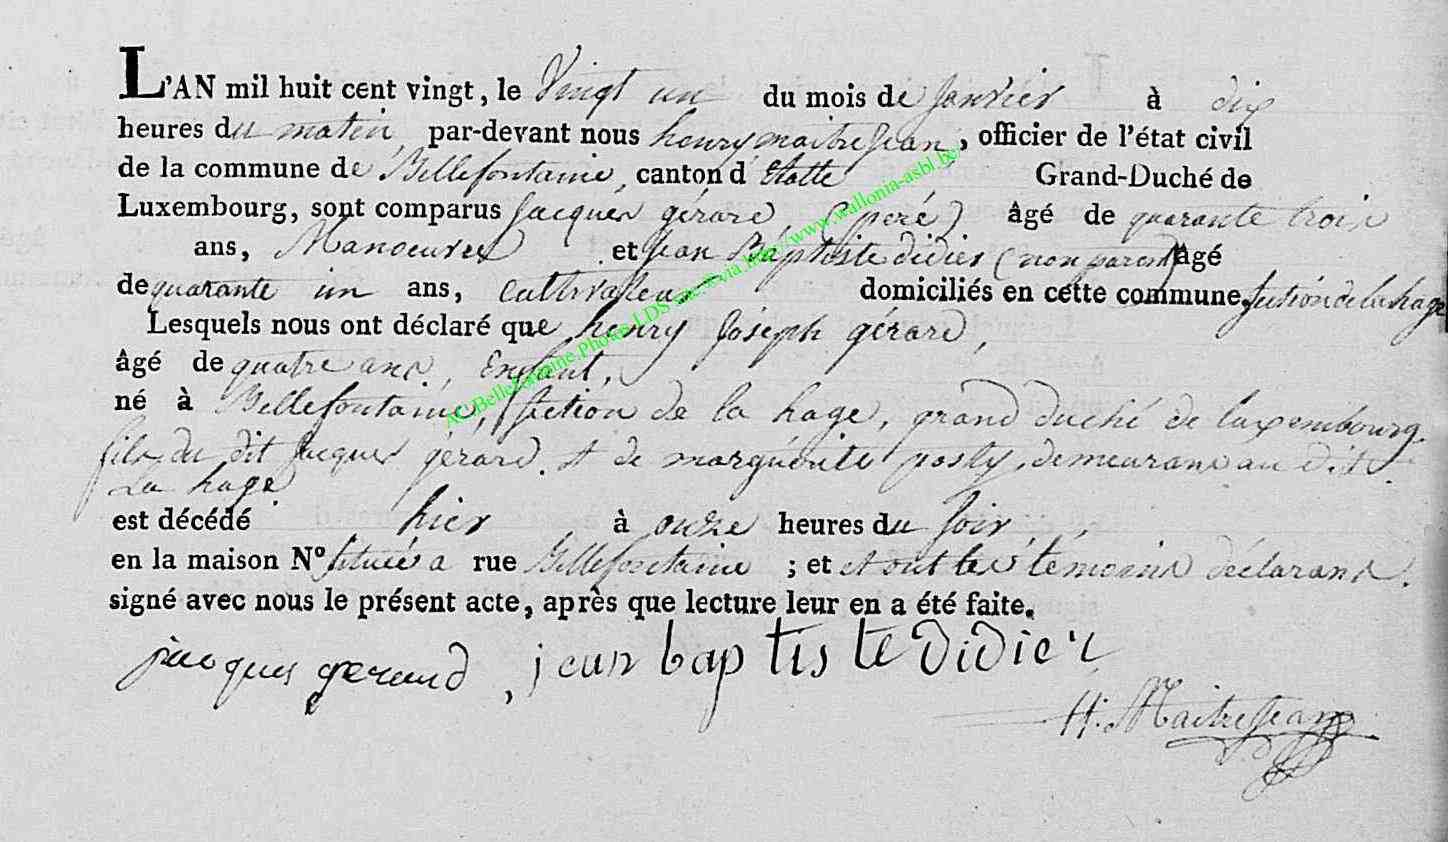 L'AN mil huit cent vingt, le Vingt un du mois de Janvier à dix
heures du matin, par-devant nous henry maitreJean, officier de l'état civil
de la commune de Bellefontaine, canton d'Etalle Grand-Duché de
Luxembourg, sont comparus Jacques gérard (peré) âgé de quarante trois
ans, Manoeuvre et Jean Baptiste didier (non parent) âgé
de quarante un ans, Cultivateur domiciliés en cette commune, section de lahage
Lesquels nous ont déclaré que henry Joseph gérard,
âgé de quatre ans, Enfant,
né à Bellefontaine, section de la hage, grand duché de luxembourg.
fils du dit Jacques gérard. et de marguerite posty, demeurans au dit
La hage
est décédé hier à onze heures du soir,
en la maison N° située a rue Bellefontaine ; et et ont les témoins déclarans.
signé avec nous le présent acte, après que lecture leur en a été faite.
jacques gerard, jean baptiste didier
H: MaitreJean
AC Bellefontaine.Photos LDS-via http://www.wallonia-asbl.be/